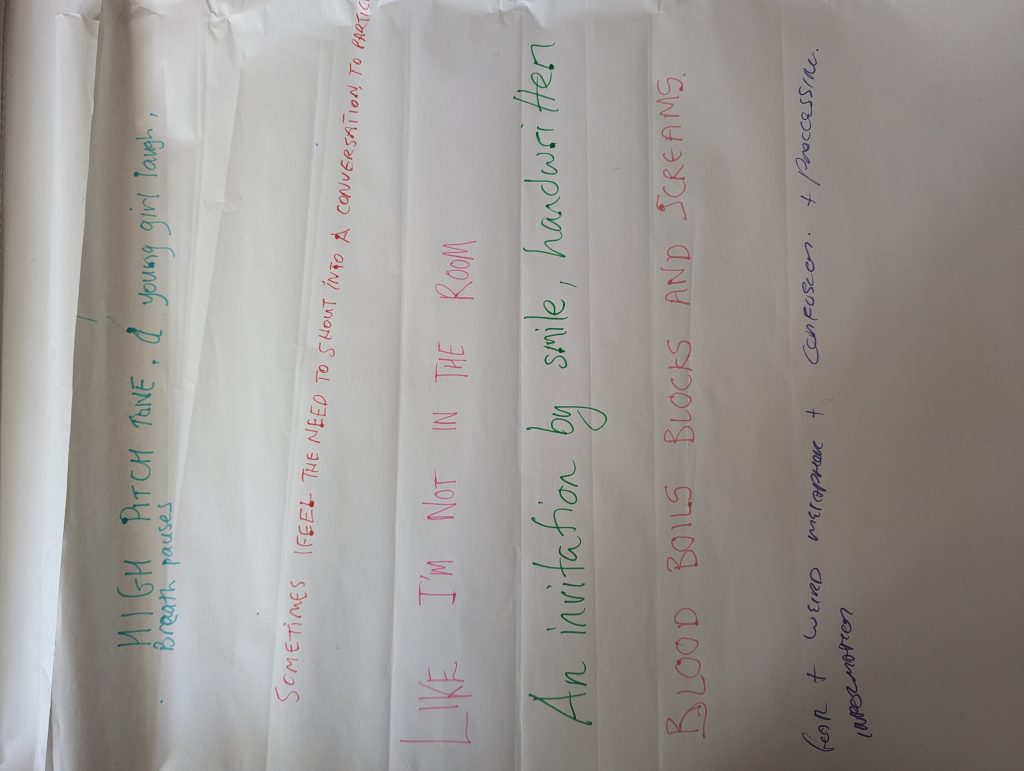 HIGH PITCH TONE. A young girl laugh,
Breath pauses
SOMETIMES I FEEL THE NEED TO SHOUT INTO A CONVERSATION, TO PARTIC
LIKE I'M NOT IN THE ROOM
An invitation by smile, handwritten
BLOOD BOILS BLOCKS AND SCREAMS.
fear + WEIRD metaphore + confusion. + proccessing.
INFORMATION